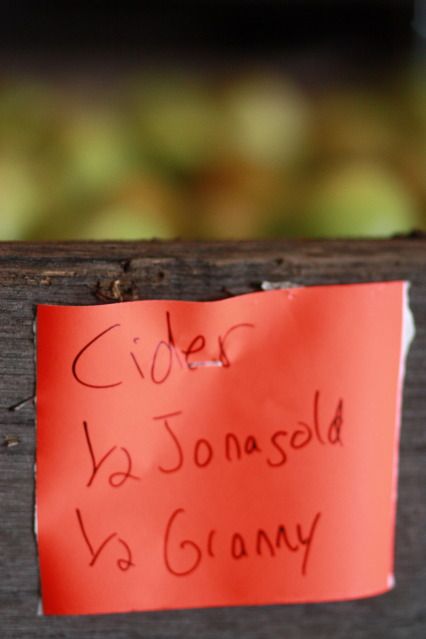 Cider
1/2 Jonagold
1/2 Granny